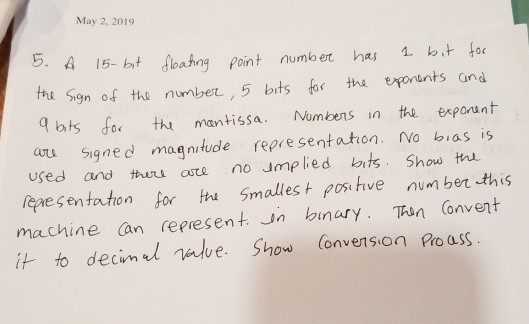 May 2, 2019
5. A 15-bit floating point number has 1 bit for
the sign of the number, 5 bits for the exponents and
9 bits for the mantissa. Numbers in the exponent
are signed magnitude representation. No bias is
used and there are no implied bits. Show the
representation for the smallest positive number this
machine can represent in binary. Then Convert
it to decimal value. Show Conversion Process.